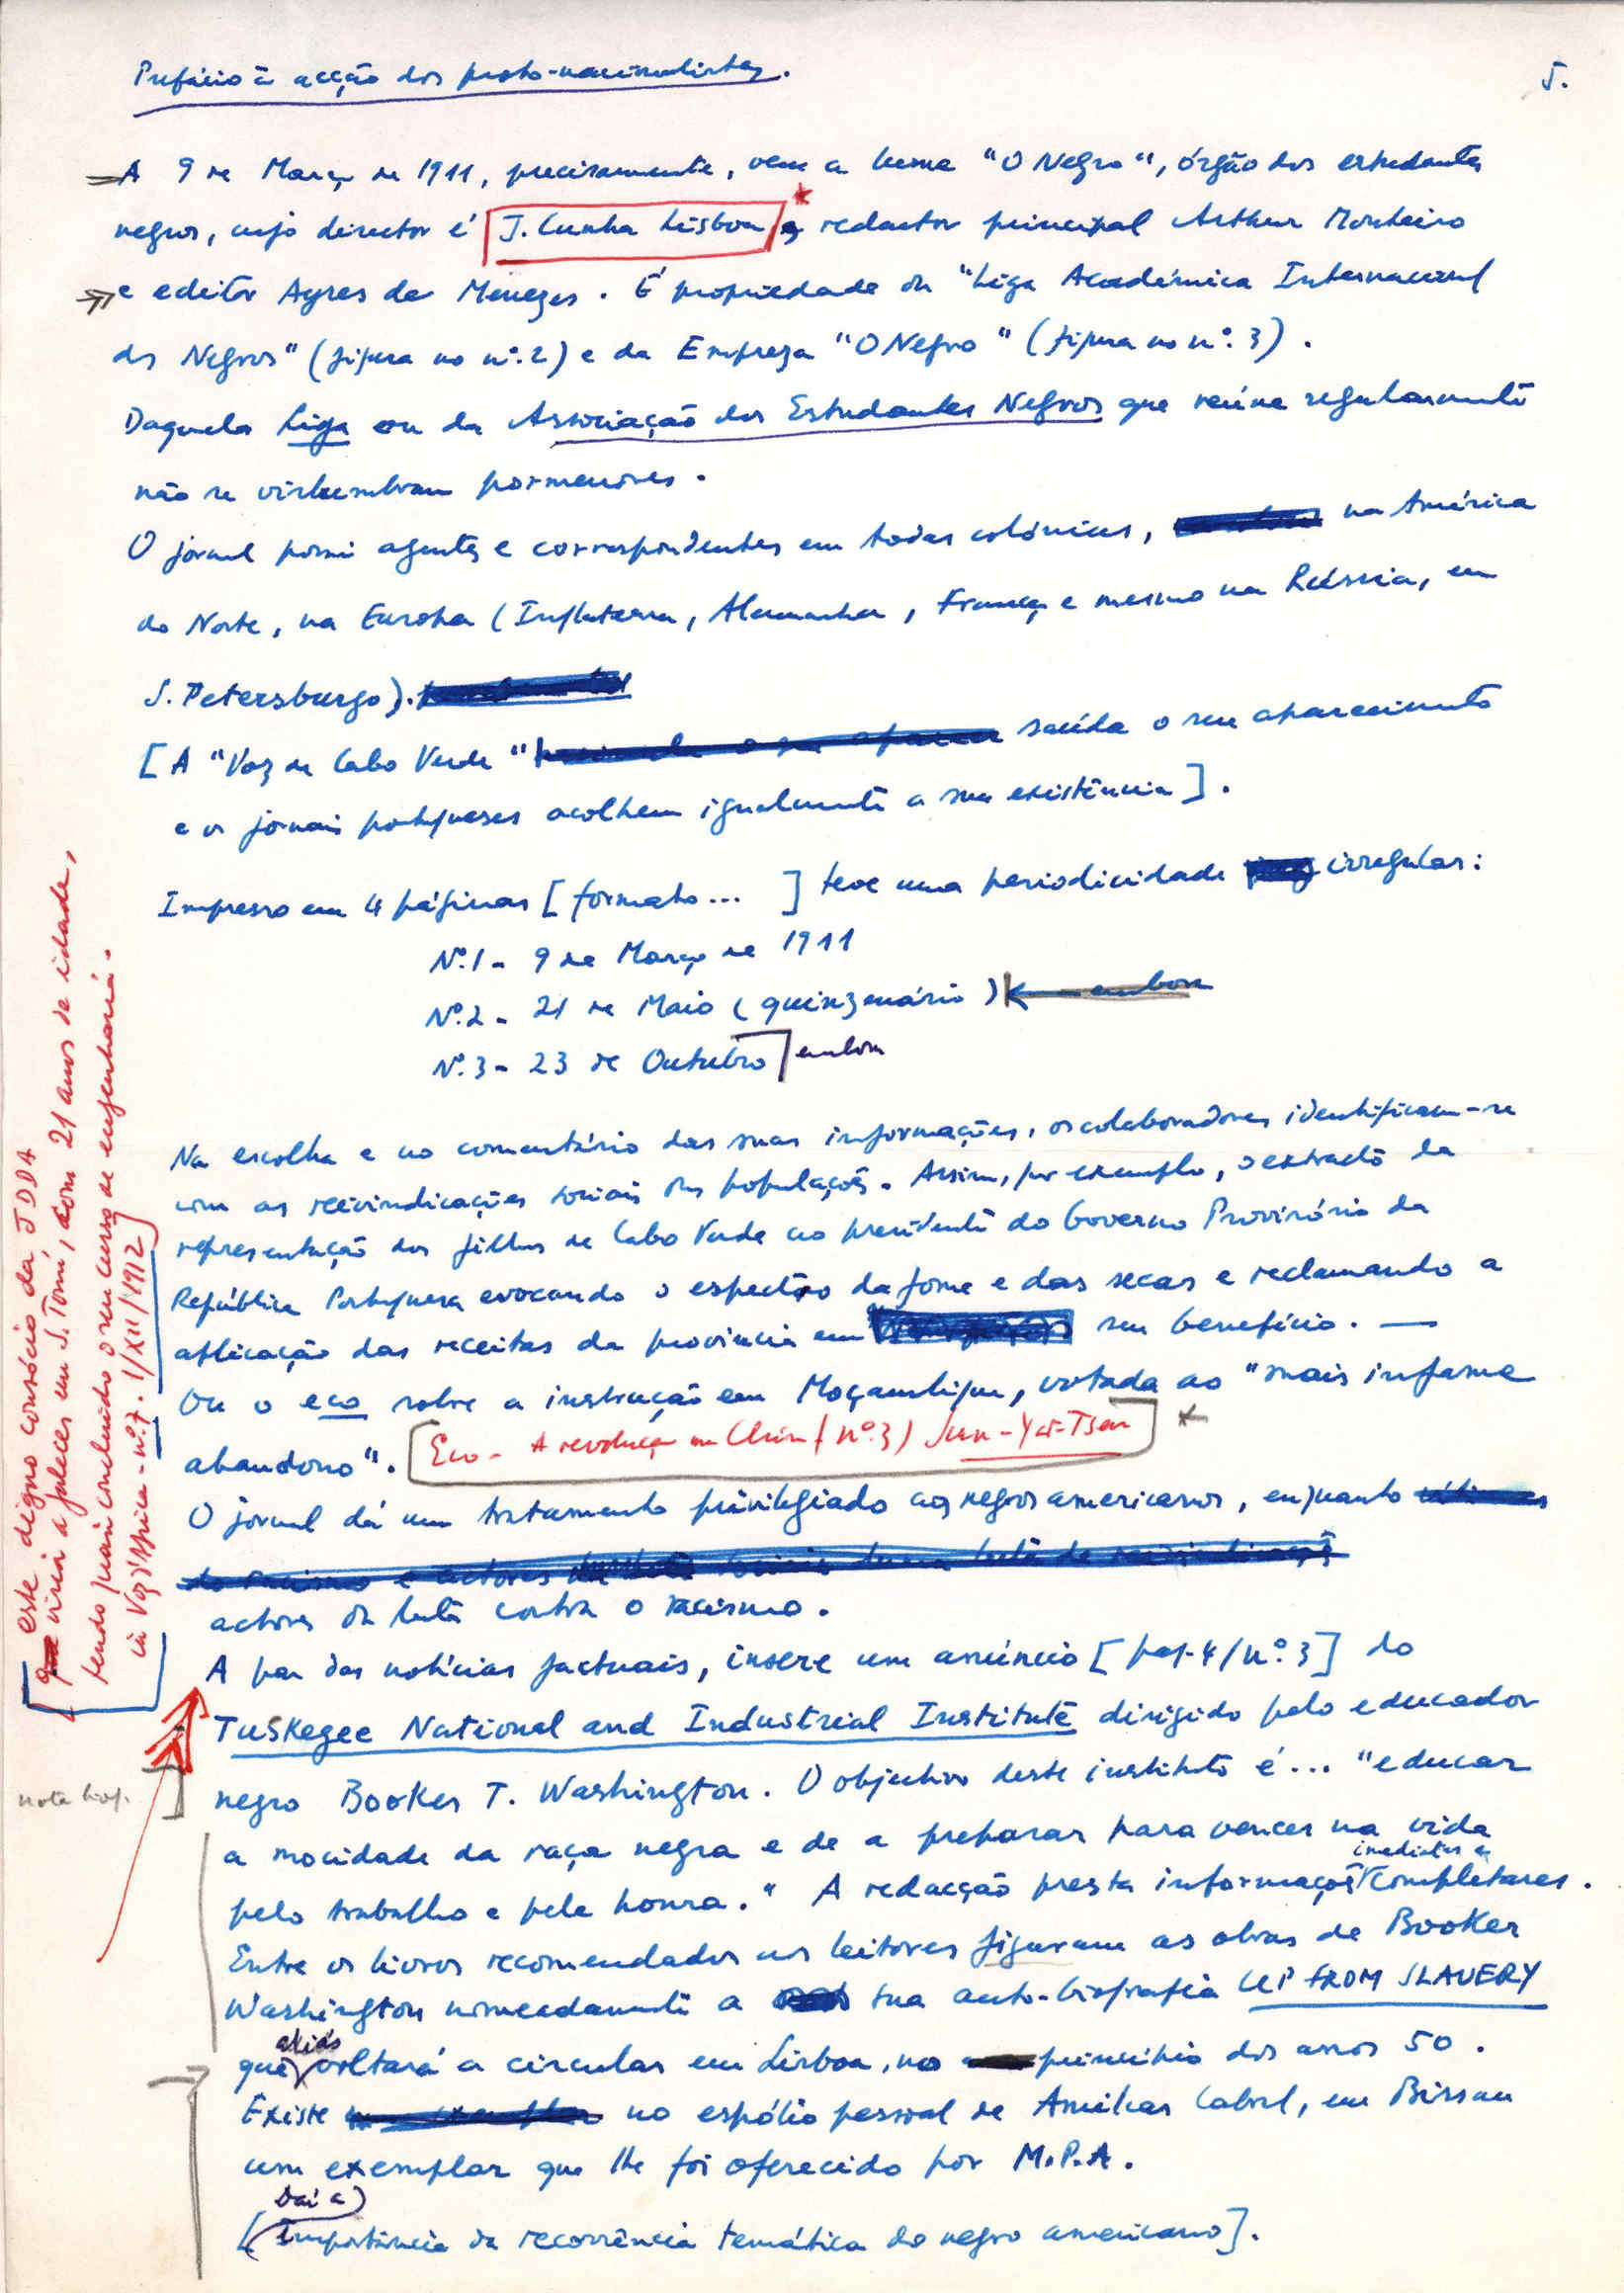 Prefácio à acção dos proto-nacionalistas.
5.
A 9 de Março de 1911, precisamente, vem a lume "O Negro", órgão dos estudantes
negros, cujo director é J. Cunha Lisboa, redactor principal Arthur Monteiro
e editor Ayres de Menezes. É propriedade da "Liga Académica Internacional
dos Negros" (figura no nº. 2) e da Empreza "O Negro" (figura no nº. 3).
Daquela Liga ou da Associação dos Estudantes Negros que reúne regularmente
não se vislumbram pormenores.
O jornal possui agentes e correspondentes em todas colónias, na América
do Norte, na Europa (Inglaterra, Alemanha, França e mesmo na Rússia, em
S. Petersburgo).
[A "Voz de Cabo Verde" saúda o seu aparecimento
e os jornais portugueses acolhem igualmente a sua existência].
Impresso em 4 páginas [formato... ] teve uma periodicidade irregular:
Nº.1 - 9 de Março de 1911
Nº.2 - 21 de Maio (quinzenário)
Nº.3 - 23 de Outubro
Na escolha e no comentário das suas informações, os colaboradores identificam-se
com as reivindicações sociais das populações. Assim, por exemplo, o extracto da
representação dos filhos de Cabo Verde ao presidente do Governo Provisório da
República Portuguesa evocando o espectro da fome e das secas e reclamando a
aplicação das receitas da província em seu benefício. —
Ou o eco sobre a instrução em Moçambique, votada ao "mais infame
abandono". [Eco - A revolução na China (nº. 3) Sun-Yat-Tsen]
O jornal dá um tratamento privilegiado aos negros americanos, enquanto
actores da luta contra o racismo.
A par das notícias factuais, insere um anúncio [pag. 4/nº. 3] do
Tuskegee National and Industrial Institute dirigido pelo educador
negro Booker T. Washington. O objectivo deste instituto é... "educar
a mocidade da raça negra e de a preparar para vencer na vida
pelo trabalho e pela honra." A redacção presta informações imediatas e completares.
Entre os livros recomendados aos leitores figuram as obras de Booker
Washington nomeadamente a sua auto-biografia UP FROM SLAVERY
que aliás voltará a circular em Lisboa, no princípio dos anos 50.
Existe no espólio pessoal de Amílcar Cabral, em Bissau
um exemplar que lhe foi oferecido por M.P.A.
[Daí a) Importância da recorrência temática do negro americano].
este digno consócio da JDDA
viria a falecer em S. Tomé, com 21 anos de idade,
tendo quasi concluído o seu curso de engenharia.
in Voz d'África - nº. 7. 1/XII/1912
nota biog.